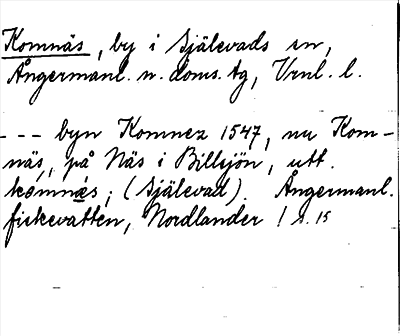 Komnäs, by i Själevads sn,
Ångermanl. n. doms. tg, Vrnl. l.
--- byn Komnez 1547, nu Kom-
näs, på Näs i Billsjön, utt.
kòmnés, (Själevad). Ångermanl.
fiskevatten, Nordlander / s. 15